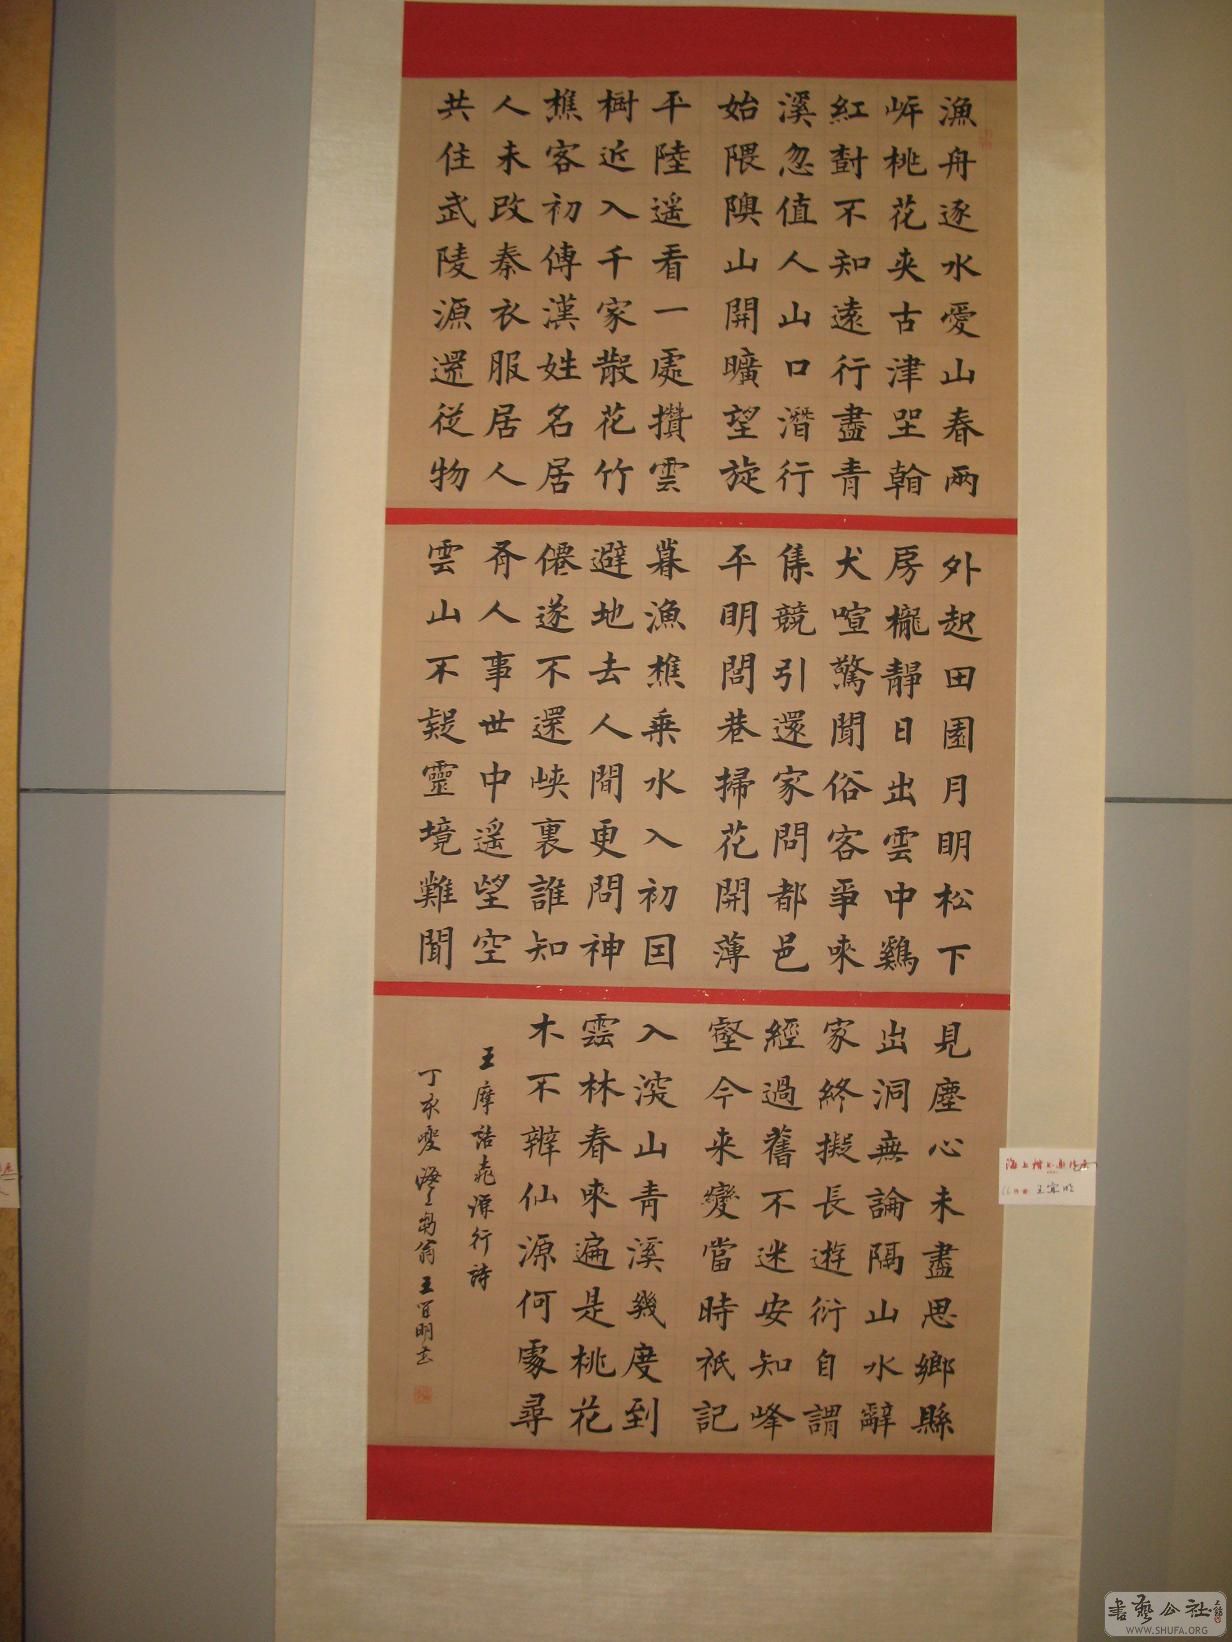 漁舟逐水愛山春兩
岸桃花夾古津坐看
紅樹不知遠行盡青
溪忽值人山口潛行
始隈隩山開曠望旋
平陸遥看一處攢雲
樹近入千家散花竹
樵客初傳漢姓名居
人未改秦衣服居人
共住武陵源還從物
外起田園月明松下
房櫳靜日出雲中鷄
犬喧驚聞俗客爭來
集競引還家問都邑
平明閭巷掃花開薄
暮漁樵乘水入初因
避地去人間更問神
僊遂不還峽裏誰知
有人事世中遥望空
雲山不疑靈境難聞
見塵心未盡思鄉縣
出洞無論隔山水辭
家終擬長遊衍自謂
經過舊不迷安知峰
壑今来變當時祇記
入深山青溪幾度到
雲林春來遍是桃花
水不辨仙源何處尋
王摩詰桃源行詩
丁亥夏海上翁王宜明書
海上楷書
王宜明
書藝公社
WWW.SHUFA.ORG